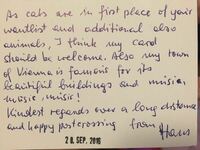 As cats are in first place of your
wantlist and additional also
animals, I think my card
should be welcome. Also my town
of Vienna is famous for its
beautiful buildings and music,
music, music!
Kindest regards over a long distance
and happy postcrossing from
28. SEP. 2016